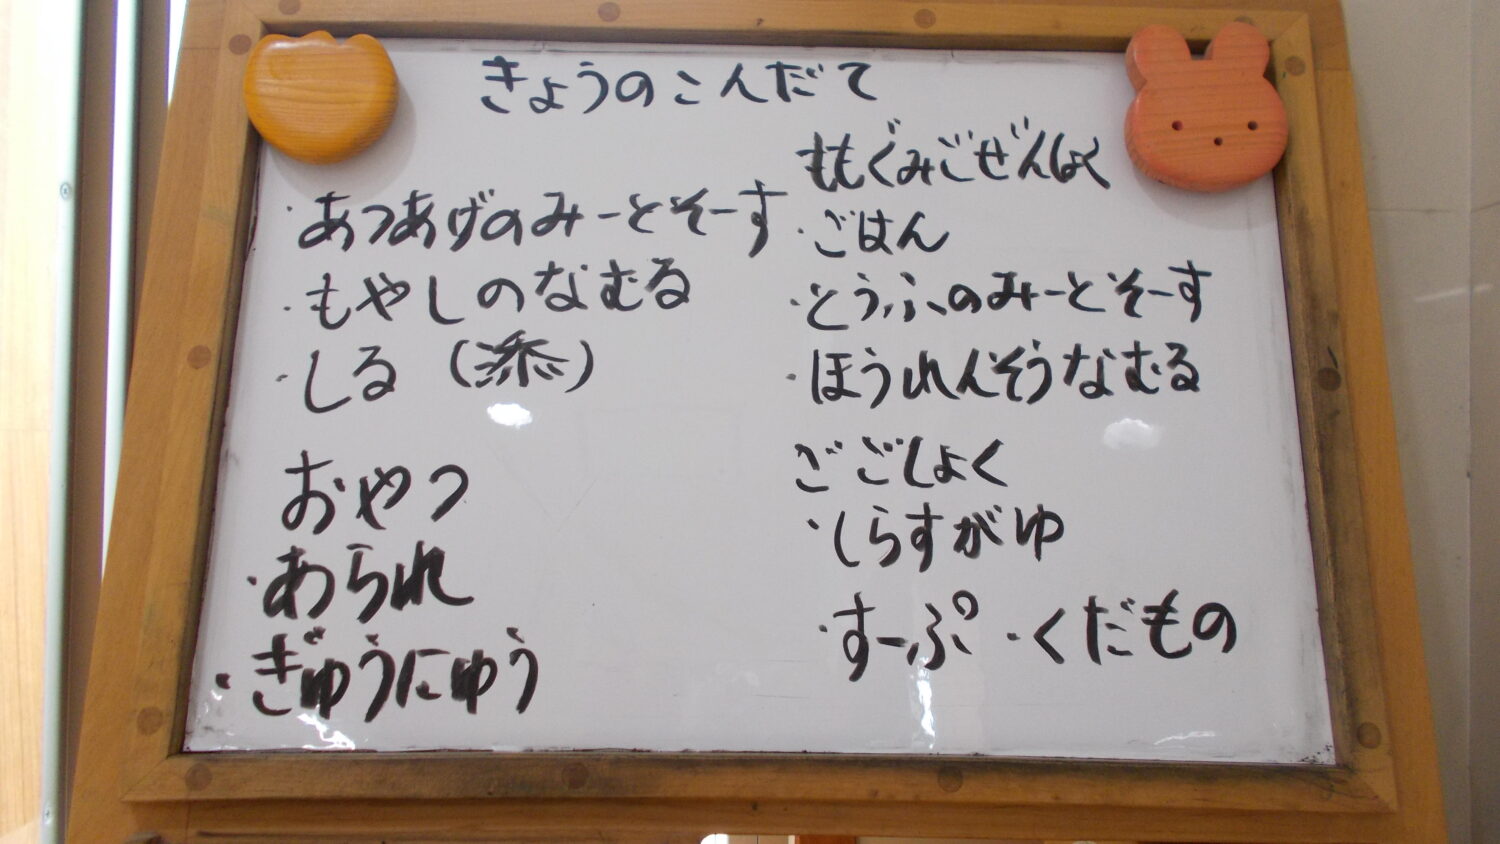 きょうのこんだて
・あつあげのみーとそーす
・もやしのなむる
・しる
おやつ
・あられ
・ぎゅうにゅう
ももぐみごぜんしょく
・ごはん
・とうふのみーとそーす
・ほうれんそうなむる
ごごしょく
・しらすがゆ
・すーぷ ・くだもの